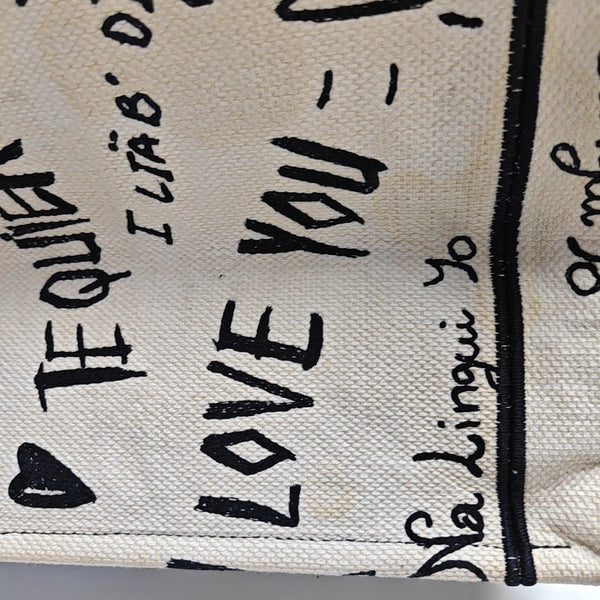 TE QUIER
I LIÄB' D
LOVE YOU
Na Lingui Yo